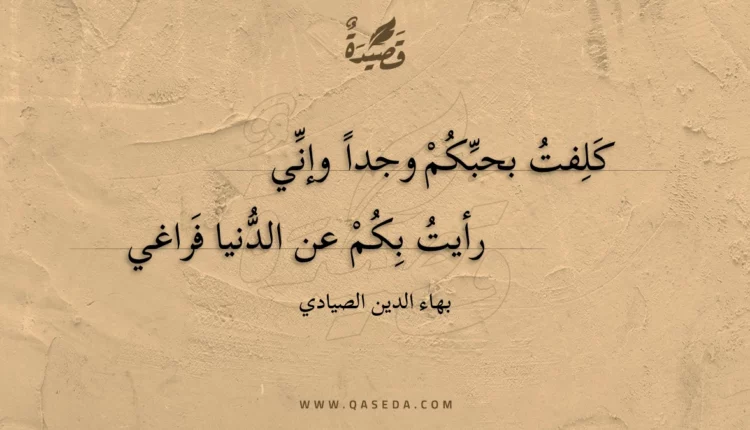 قَصِيدَةٌ
كَلِفتُ بحبِّكُمْ وجداً وإنِّي
رأيتُ بِكُمْ عن الدُّنيا فَراغي
بهاء الدين الصيادي
WWW.QASEDA.COM